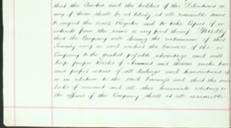 that the Trustee and the holders of the Debentures or
any of them shall be at liberty at all reasonable times
to inspect the said Register and to take Copies of or
extracts from the same or any part thereof
that the Company will during the continuance of this
Security carry on and conduct the business of the
Company to the greatest possible advantage and will
keep proper Books of Account and therein make true
and perfect entries of all dealings and transactions of
or in relation to the said business and that the said
books of account and all other documents relating to
the affairs of the Company shall at all reasonable